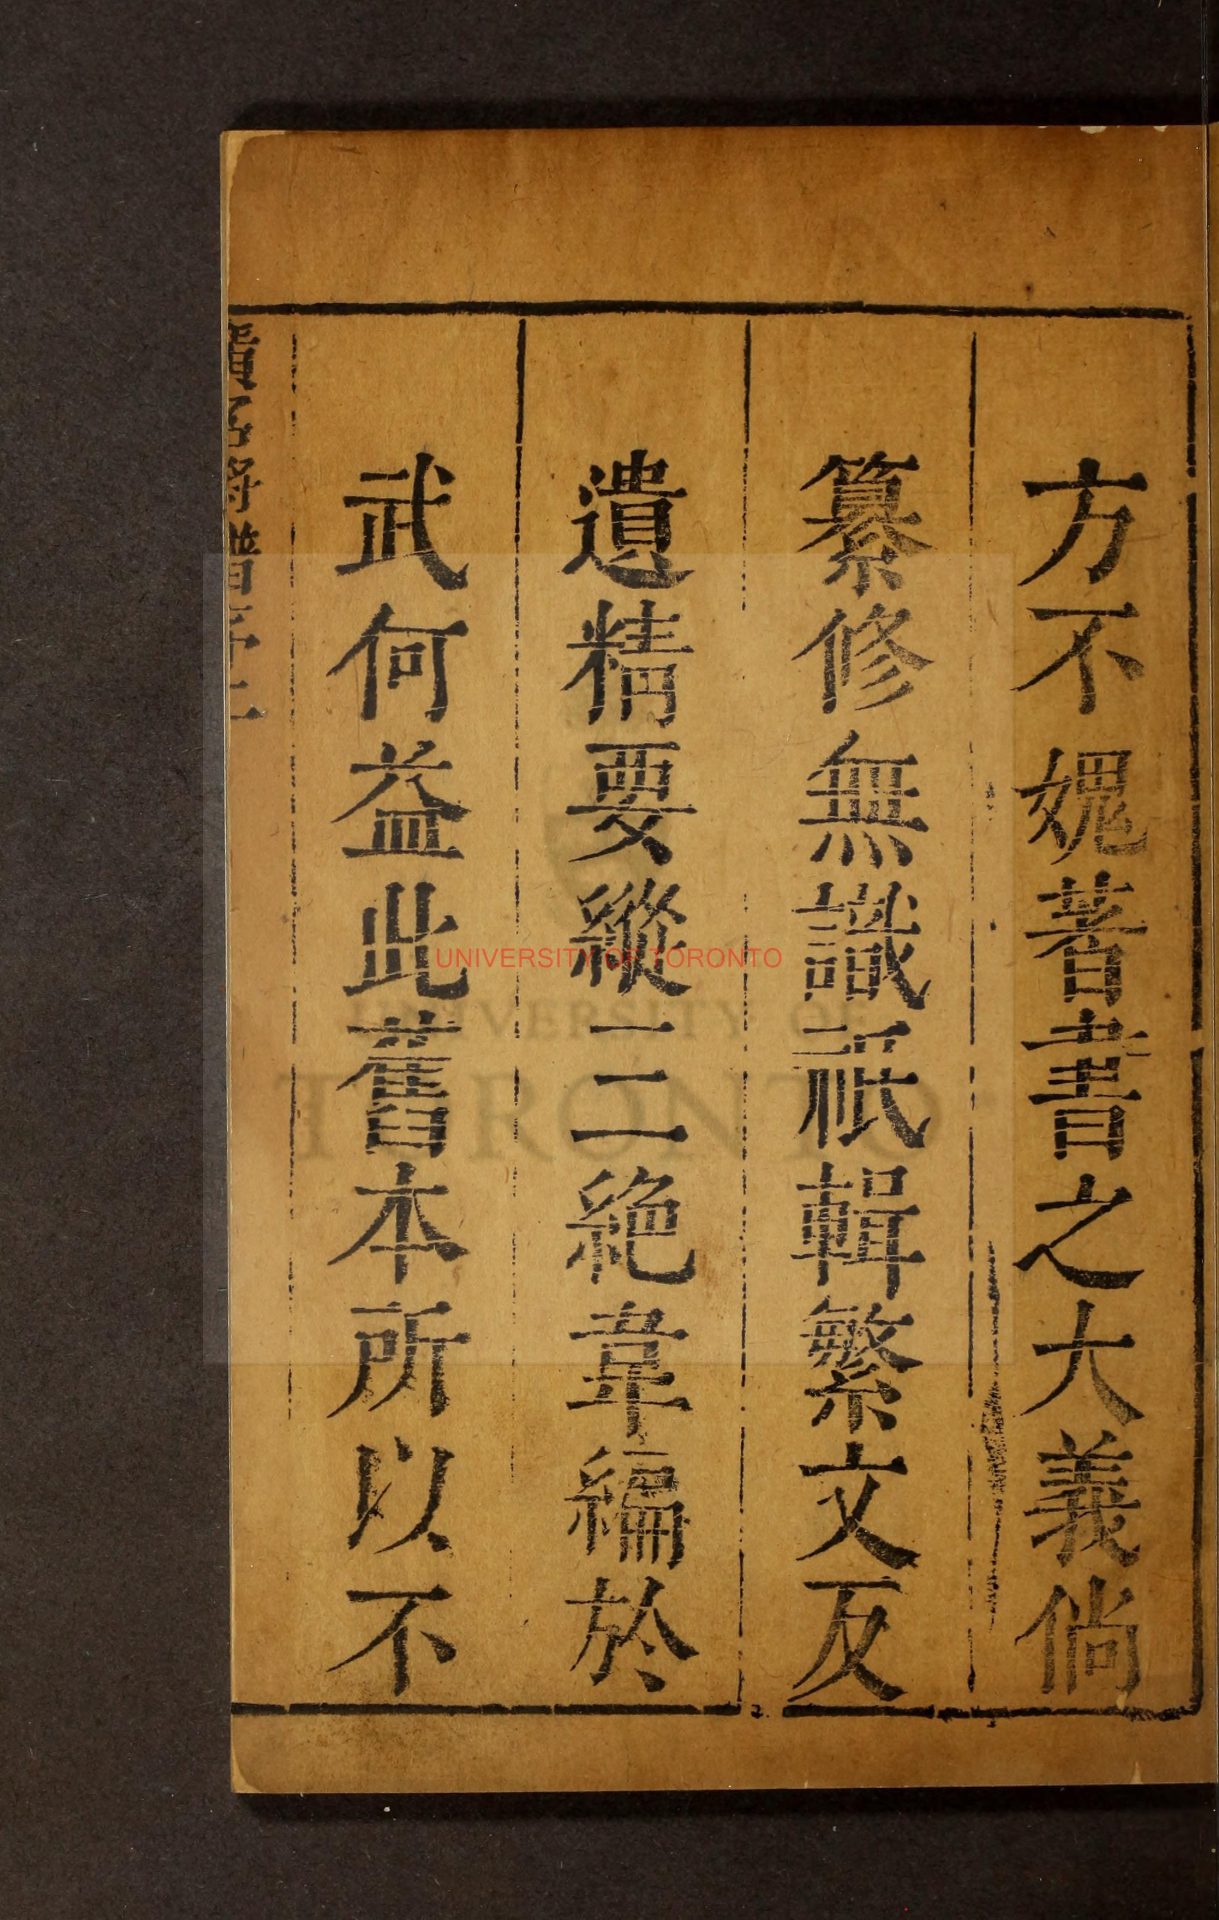 方不媿著書之大義倘
纂修無識祇輯繁文反
遺精要縱二三絶韋編於
武何益此舊本所以不
UNIVERSITY OF TORONTO
UNIVERSITY OF
TORONTO